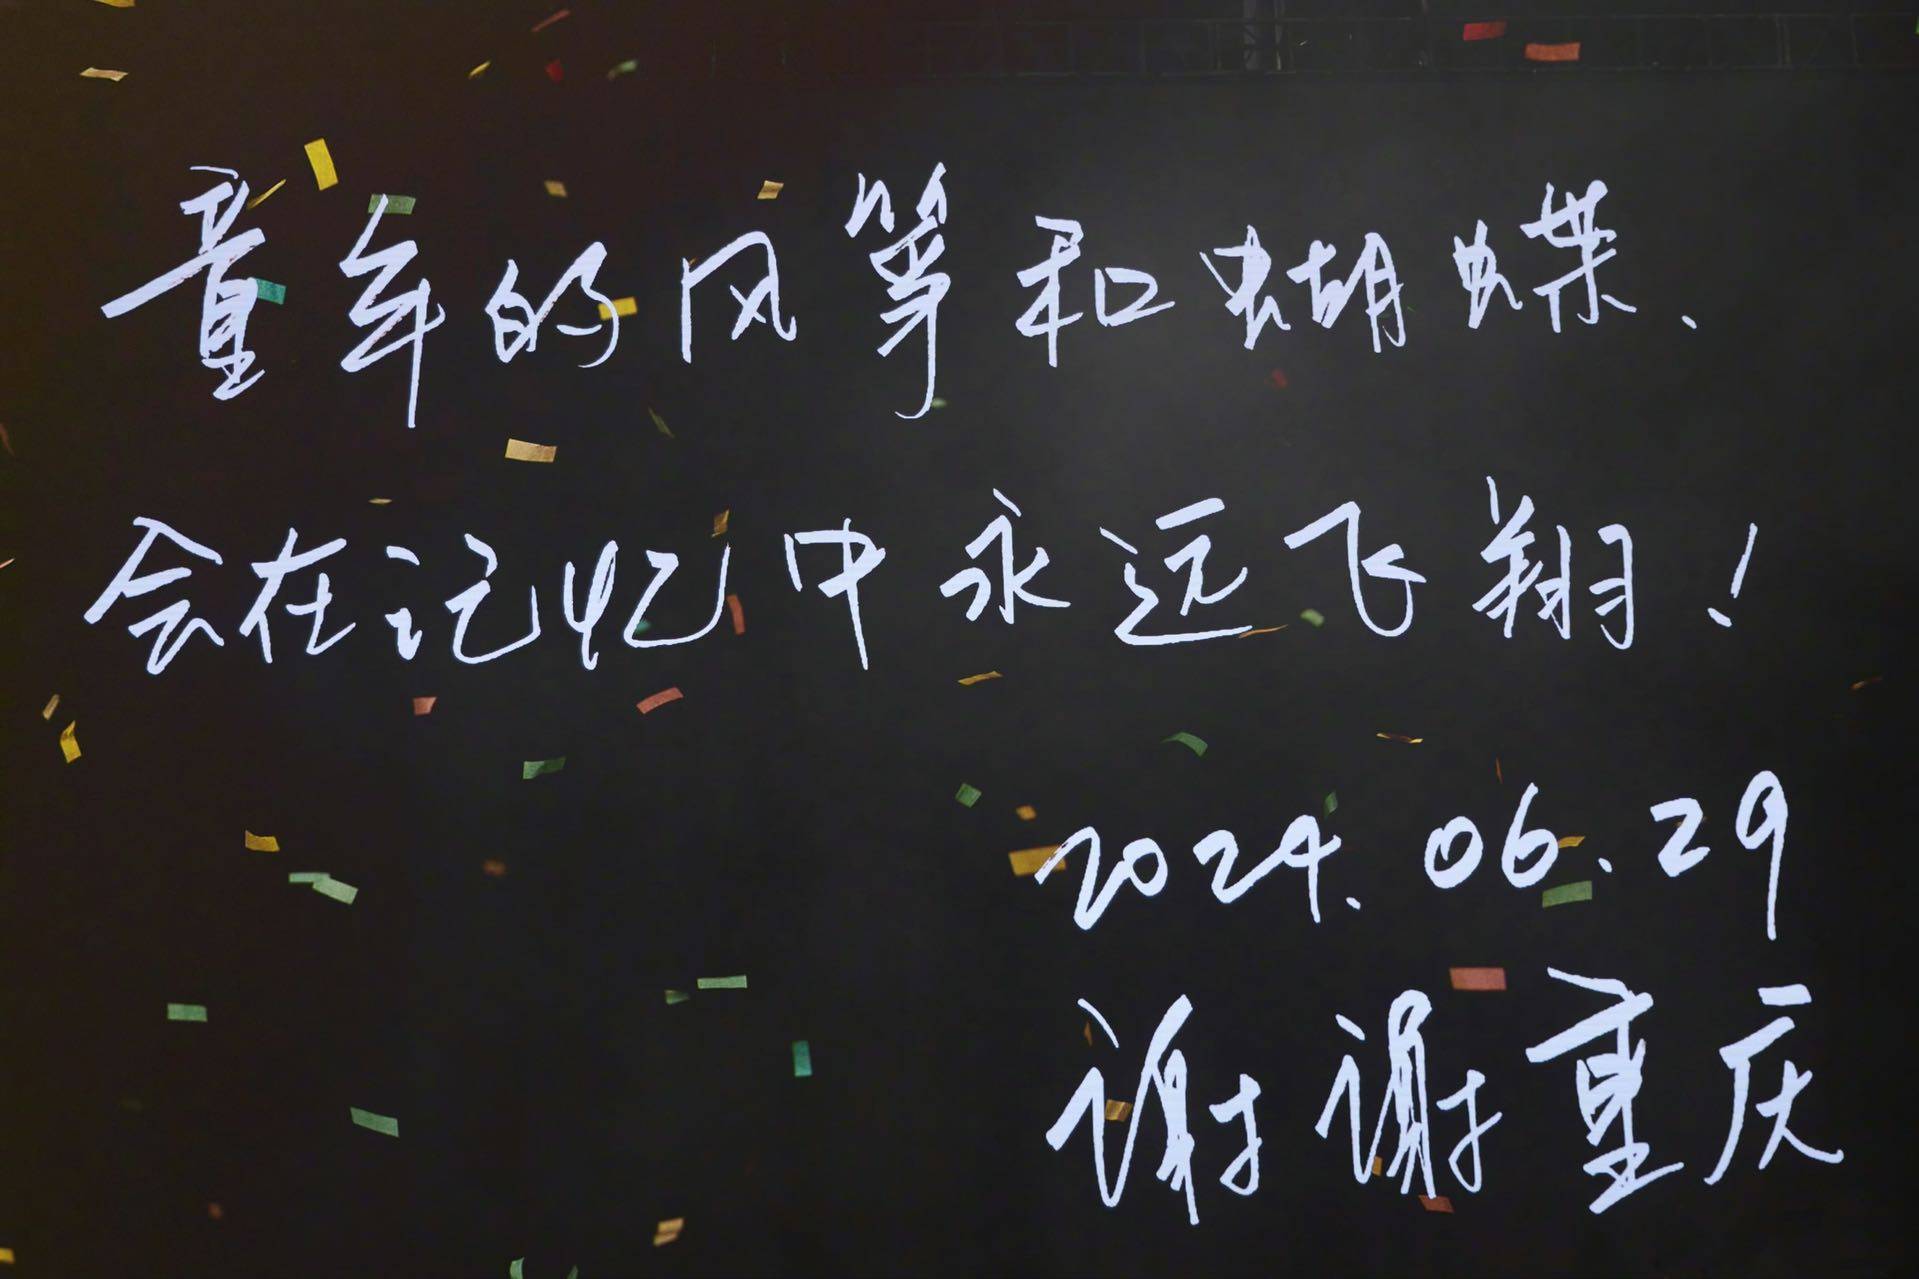 童年的风筝和蝴蝶.
会在记忆中永远飞翔!
2024.06.29
谢谢重庆